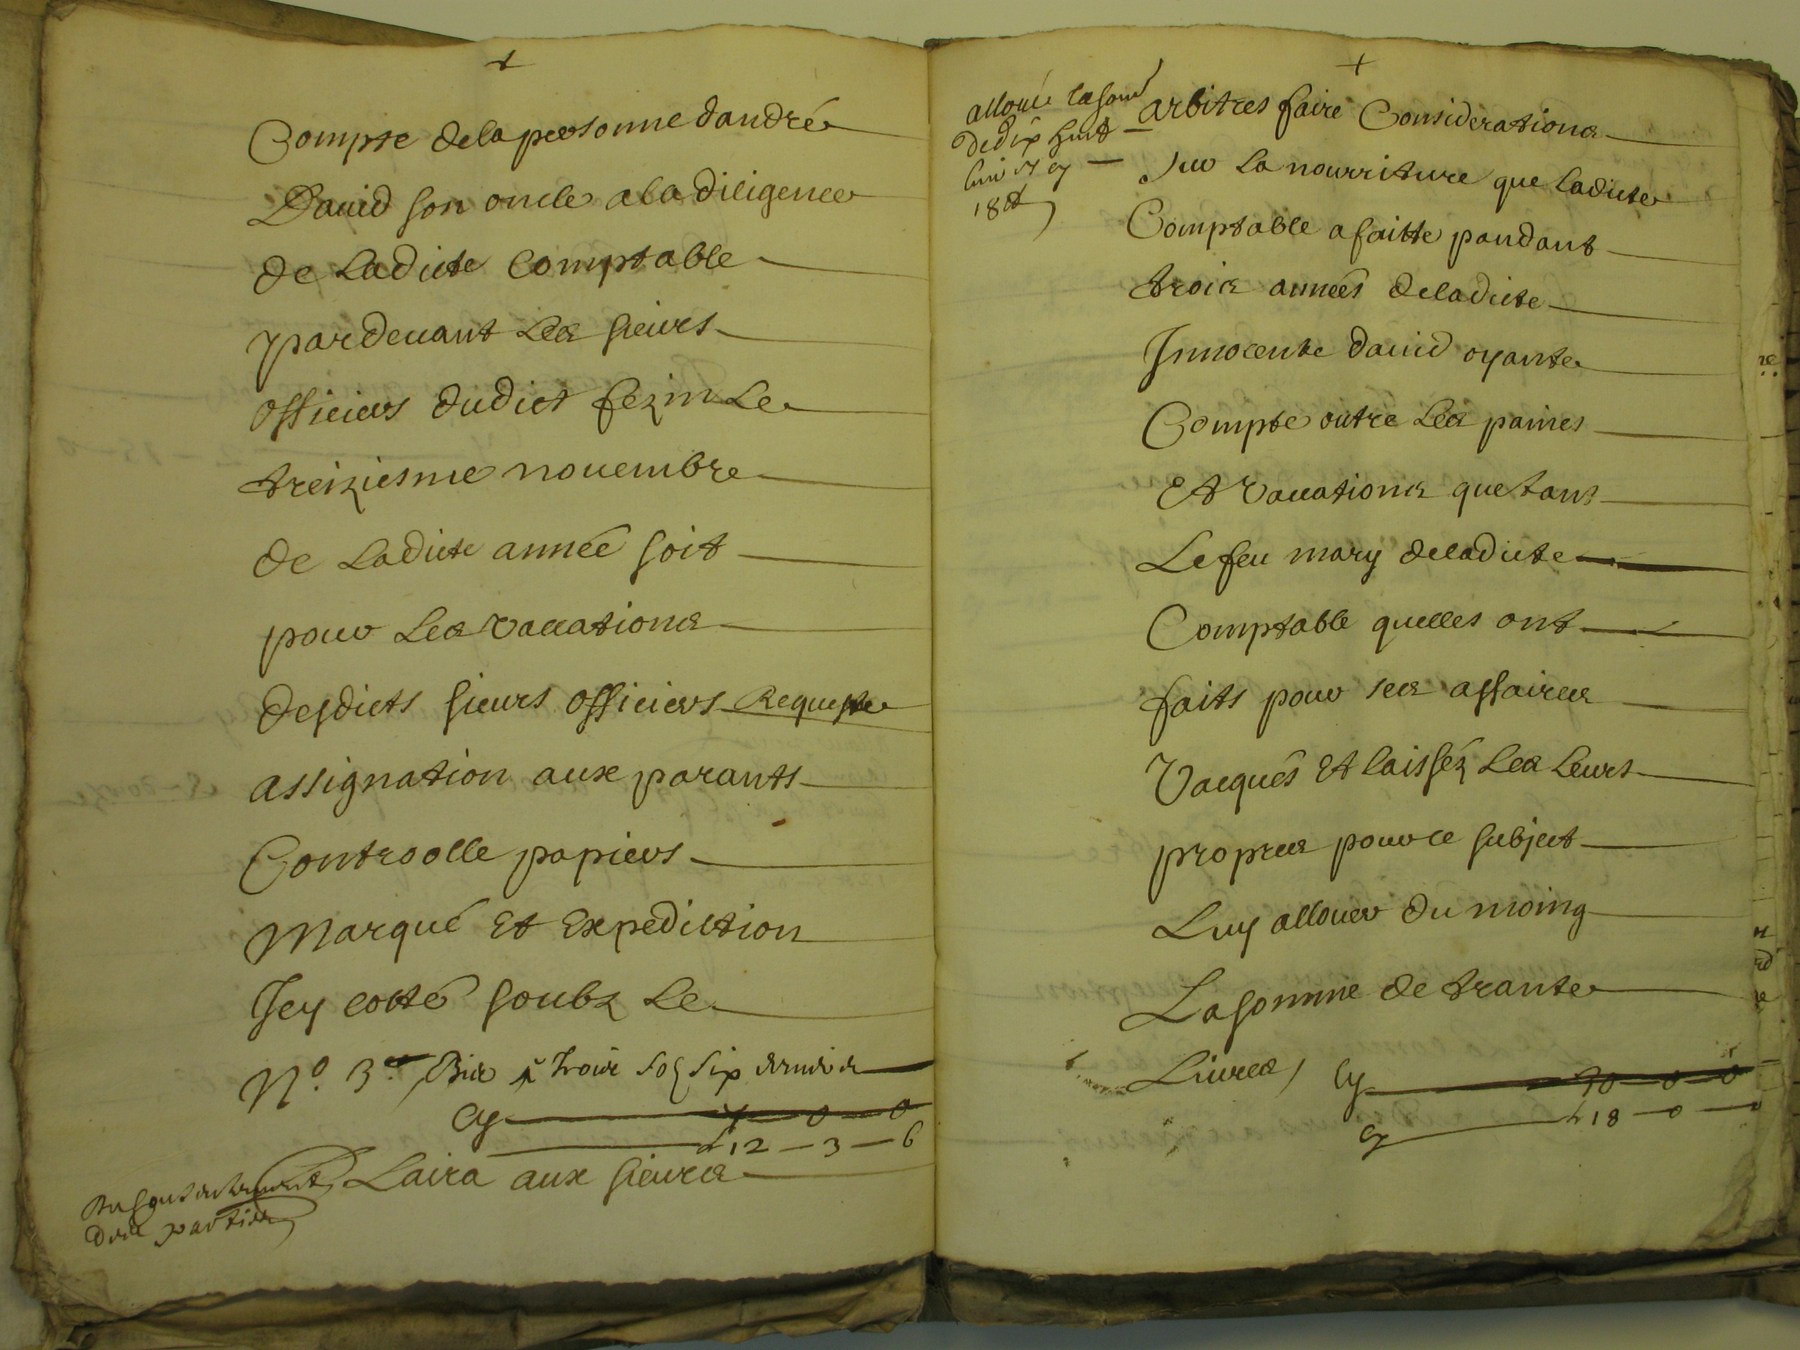 +
Compte de la personne dandré
Dauid son oncle a la diligence
de Ladicte Comptable
pardeuant Les sieurs
officiers dudict fezin Le
treiziesme nouembre
de Ladicte année soit
pour Les vaccations
desdicts sieurs officiers Requeste
assignation aux parants
Controolle papiers
Marqué Et Expediction
Icy cotté soubz Le
N.º 3.
trois solz six deniers
Cy 0 0
L 12 — 3 — 6
Laira aux sieurs
parties
+
allouée la some
de dix huit
livres cy
18 lt
arbitres faire Considerations
sur La nourriture que Ladicte
Comptable a faitte pandant
trois années deladicte
Innocente dauid oyante
Compte outre Les paines
Et vaccations que tant
Le feu mary deladicte
Comptable quelles ont
faits pour ses affaires
Vacqués Et laissés Les Leurs
propres pour ce subject
Luy allouer du moing
La somme de trante
Liures / Cy 30 — 0 — 0
cy L 18 — 0 — 0